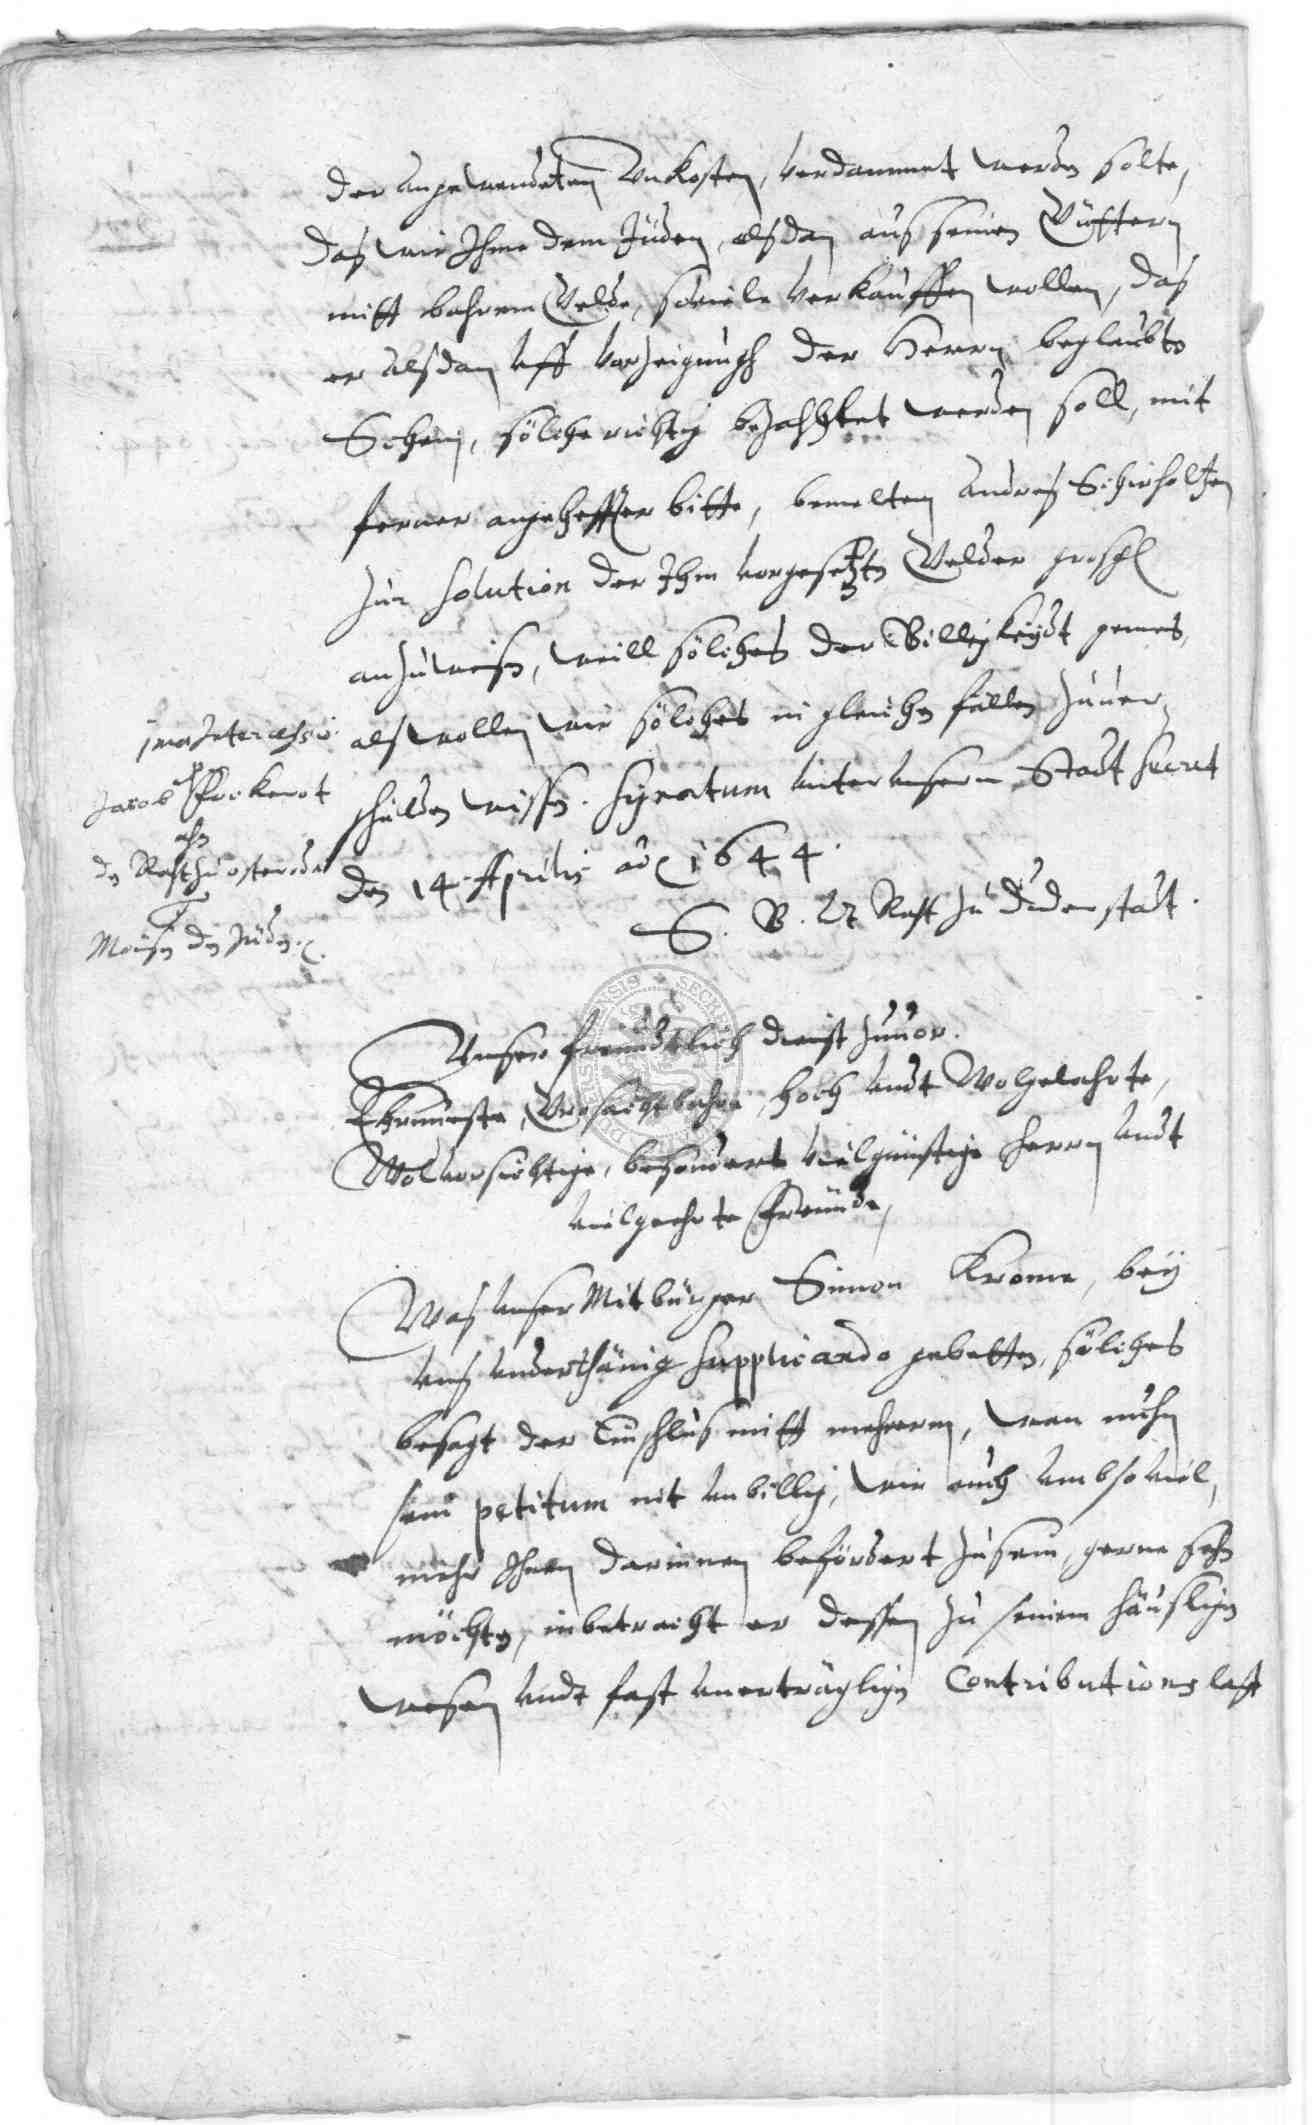 der angewendeten Unkosten, verdammet werden solte,
das wir Ihme dem Jüden, alsdan aus seinen Güttern
mitt bahrem Gelde, soviele verkauffen wollen, das
er alsdan uff vorzeigungh der Herrn beglaubten
Schein, solche richtig bezahltet werden soll, mit
ferner angeheffter bitte, bemelten Andres Schirholtzen
zur solution der Ihm vorgesetzten Gelder großgl
anzuweisen, weill solches der Billigkeydt gemes,
als wollen wir solches in gleichen fällen zuver¬
schulden wissen. Signatum unter unserm Stadt Secret
den 14. Aprilis ao 1644.
S. B. u Raht zu Duderstadt.
ima Intercessio
Jacob
ahn
den Raht zu Osteroda
Moisen den Juden.
Unser freundtlich dienst zuuor.
Ehrnueste, Grosachtbahre, hoch undt Wolgelahrte,
Wolvorsichtige, besonders vielgünstige Herrn undt
vielgeehrte Freunde,
Was unser Mitbürger Simon Krome, bey
uns underthänig supplicando gebetten, solches
besagt der Einschlus mitt mehrerm, wan nuhn
sein petitum nit unbillig, wir auch umb so viel,
mehr Ihnen darinnen befördert zusein, gerne sehen
möchten, inbetracht er dessen zu seinem häuslichen
wesen undt fast unerträglichen Contributions last